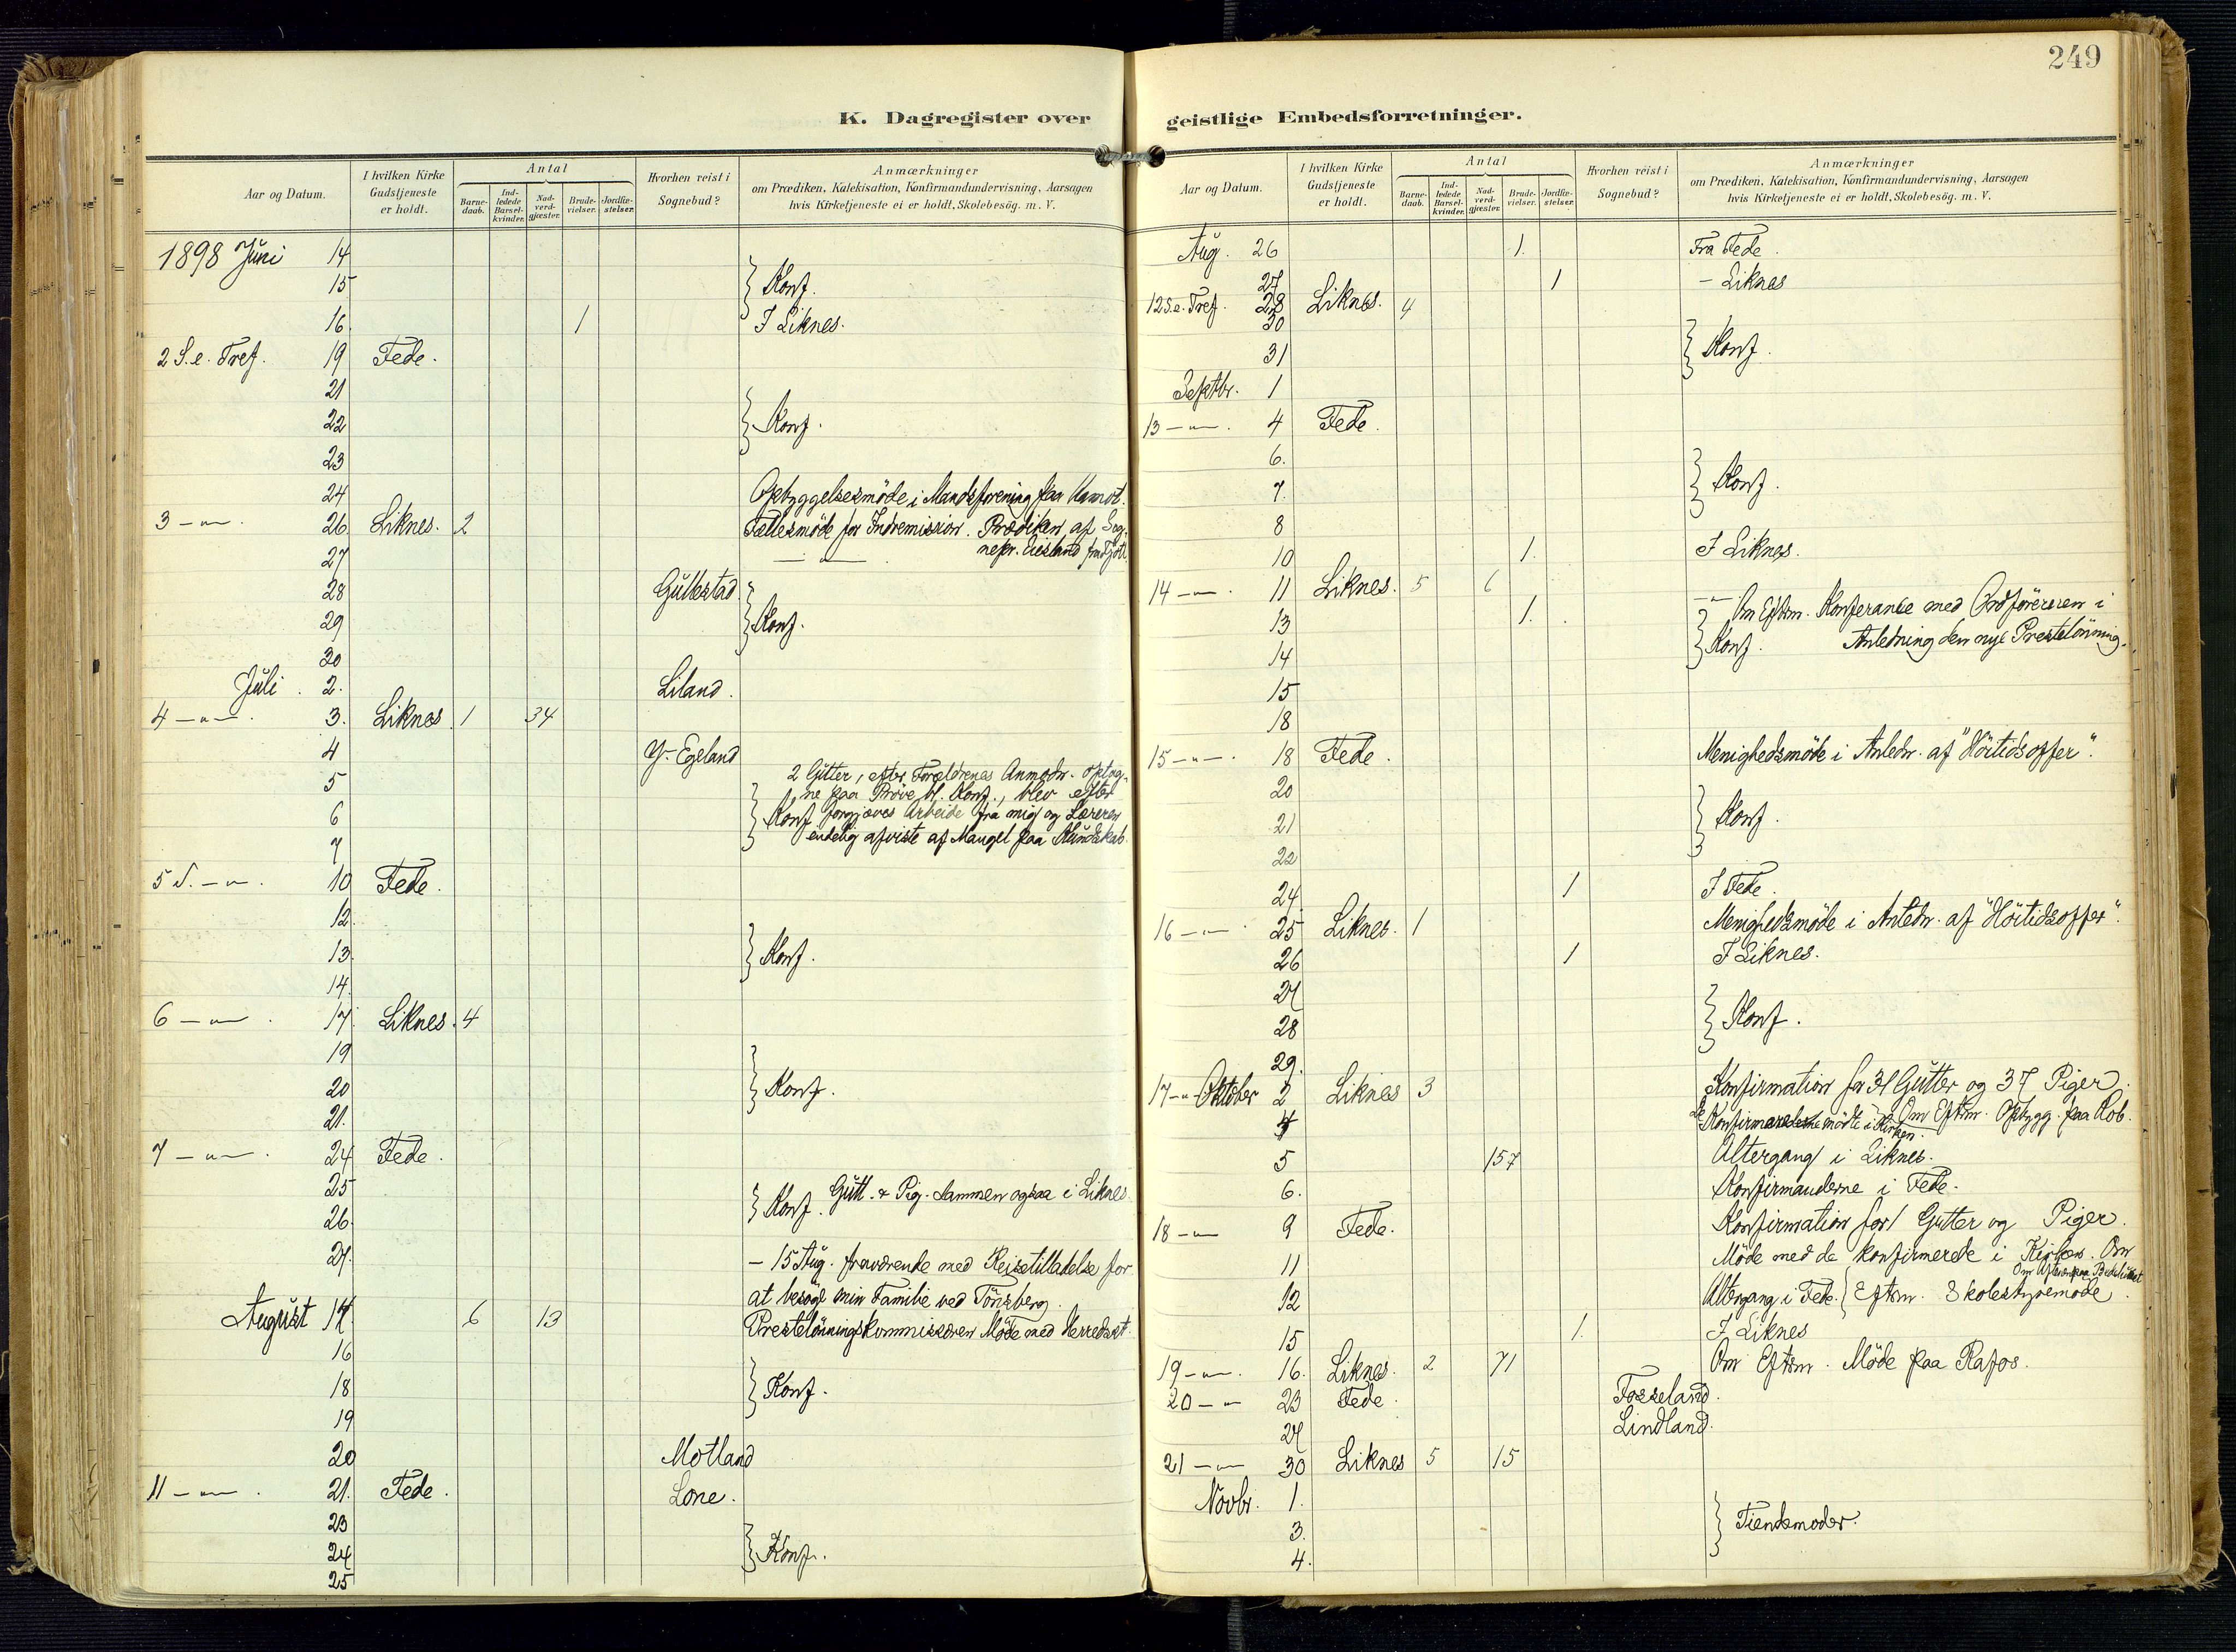 249
K. Dagregister over
Aar og Datum.
I hvilken Kirke Gudstjeneste er holdt.
Antal
Barne-daab.
Ind-ledede Barsel-kvinder.
Nad-verd-gjæster.
Brude-vielser.
Jordfæ-stelser.
Hvorhen reist i Sognebud?
Anmærkninger
om Prædiken, Katekisation, Konfirmandundervisning, Aarsagen
hvis Kirketjeneste ei er holdt, Skolebesög. m. V.
1898 Juni 14
15 } Konf.
16. 1 I Liknes.
2 S. e. Tref. 19 Fede.
21
22 } Konf.
23
24 Opbyggelsesmöde i Mandsforening paa
3 -"-. 26 Liknes. 2 Fællesmöde for Indremission. Prædiken af Sog-
27 -"- nepr.
28 Gullestad
29 } Konf.
30
Juli. 2. Liland.
4 -"-. 3. Liknes. 1 34
4 Y. Egeland
5 2 Gutter, efter Forældrenes Anmodn. optag-
ne paa Pröve bl. Konf., blev efter
6 } Konf forgjæves Arbeide fra mig og Læreren
7 endelig afviste af Mangel paa Kundskab.
5 S. -"-. 10 Fede.
12
13 } Konf.
14.
6 -"-. 17. Liknes. 4
19
20 } Konf.
21.
7 -"-. 24 Fede.
25 } Konf. Gutt. & Pig. sammen ogsaa i Liknes
26.
27. - 15 Aug. fraværende med Reisetilladelse for
at besöge min Familie ved Tönsberg.
August 14. 6 13 Prestelönningskommissören Möde med Herredsst.
16
18 } Konf.
19
20 Motland
11 -"-. 21. Fede. Lone.
23
24 } Konf.
25
geistlige Embedsforretninger.
Aar og Datum.
I hvilken Kirke Gudstjeneste er holdt.
Antal
Barne-daab.
Ind-ledede Barsel-kvinder.
Nad-verd-gjæster.
Brude-vielser.
Jordfæ-stelser.
Hvorhen reist i Sognebud?
Anmærkninger
om Prædiken, Katekisation, Konfirmandundervisning, Aarsagen
hvis Kirketjeneste ei er holdt, Skolebesög. m. V.
Aug. 26 1. Fra Fede.
27 1 - Liknes
12 S. e. Tref. 28 Liknes. 4
30
31 } Konf.
Septbr. 1
13 -"-. 4 Fede.
6.
7. } Konf.
8
10 1. I Liknes.
14 -"-. 11 Liknes. 5 6 -"- Om Eftrm. Konferanse med Ordföreren i
13 1. } Konf. Anledning den nye Prestelönning.
14
15
18
15 -"-. 18 Fede. Menighedsmöde i Anledn. af "Höitidsoffer".
20
21 } Konf.
22
24. 1 I Fede.
16 -"-. 25 Liknes. 1 Menighedsmöde i Anledn. af "Höitidsoffer".
26 1 I Liknes.
27
28 } Konf.
29.
17 -"- Oktober 2 Liknes 3 Konfirmation for 31 Gutter og 37 Piger.
4 De Konfirmerede mödte i Kirken. } Om Eftrm. Opbygg. paa Rob.
5 157 Altergang i Liknes.
6. Konfirmanderne i Fede.
18 -"- 9 Fede. Konfirmation for Gutter og Piger.
11 Möde med de konfirmerede i Kirken. Om
Om Aftenen paa Bedehuset
12 Altergang i Fede. { Eftrm. Skolestyremöde.
15 1. I Liknes
19 -"-. 16. Liknes. 2 71 Om Eftrm. Möde paa Rafos.
20 -"- 23 Fede. Fosseland.
24 Lindland.
21 -"- 30 Liknes 5 15
Novbr. 1.
3. } Tiendemöder.
4.